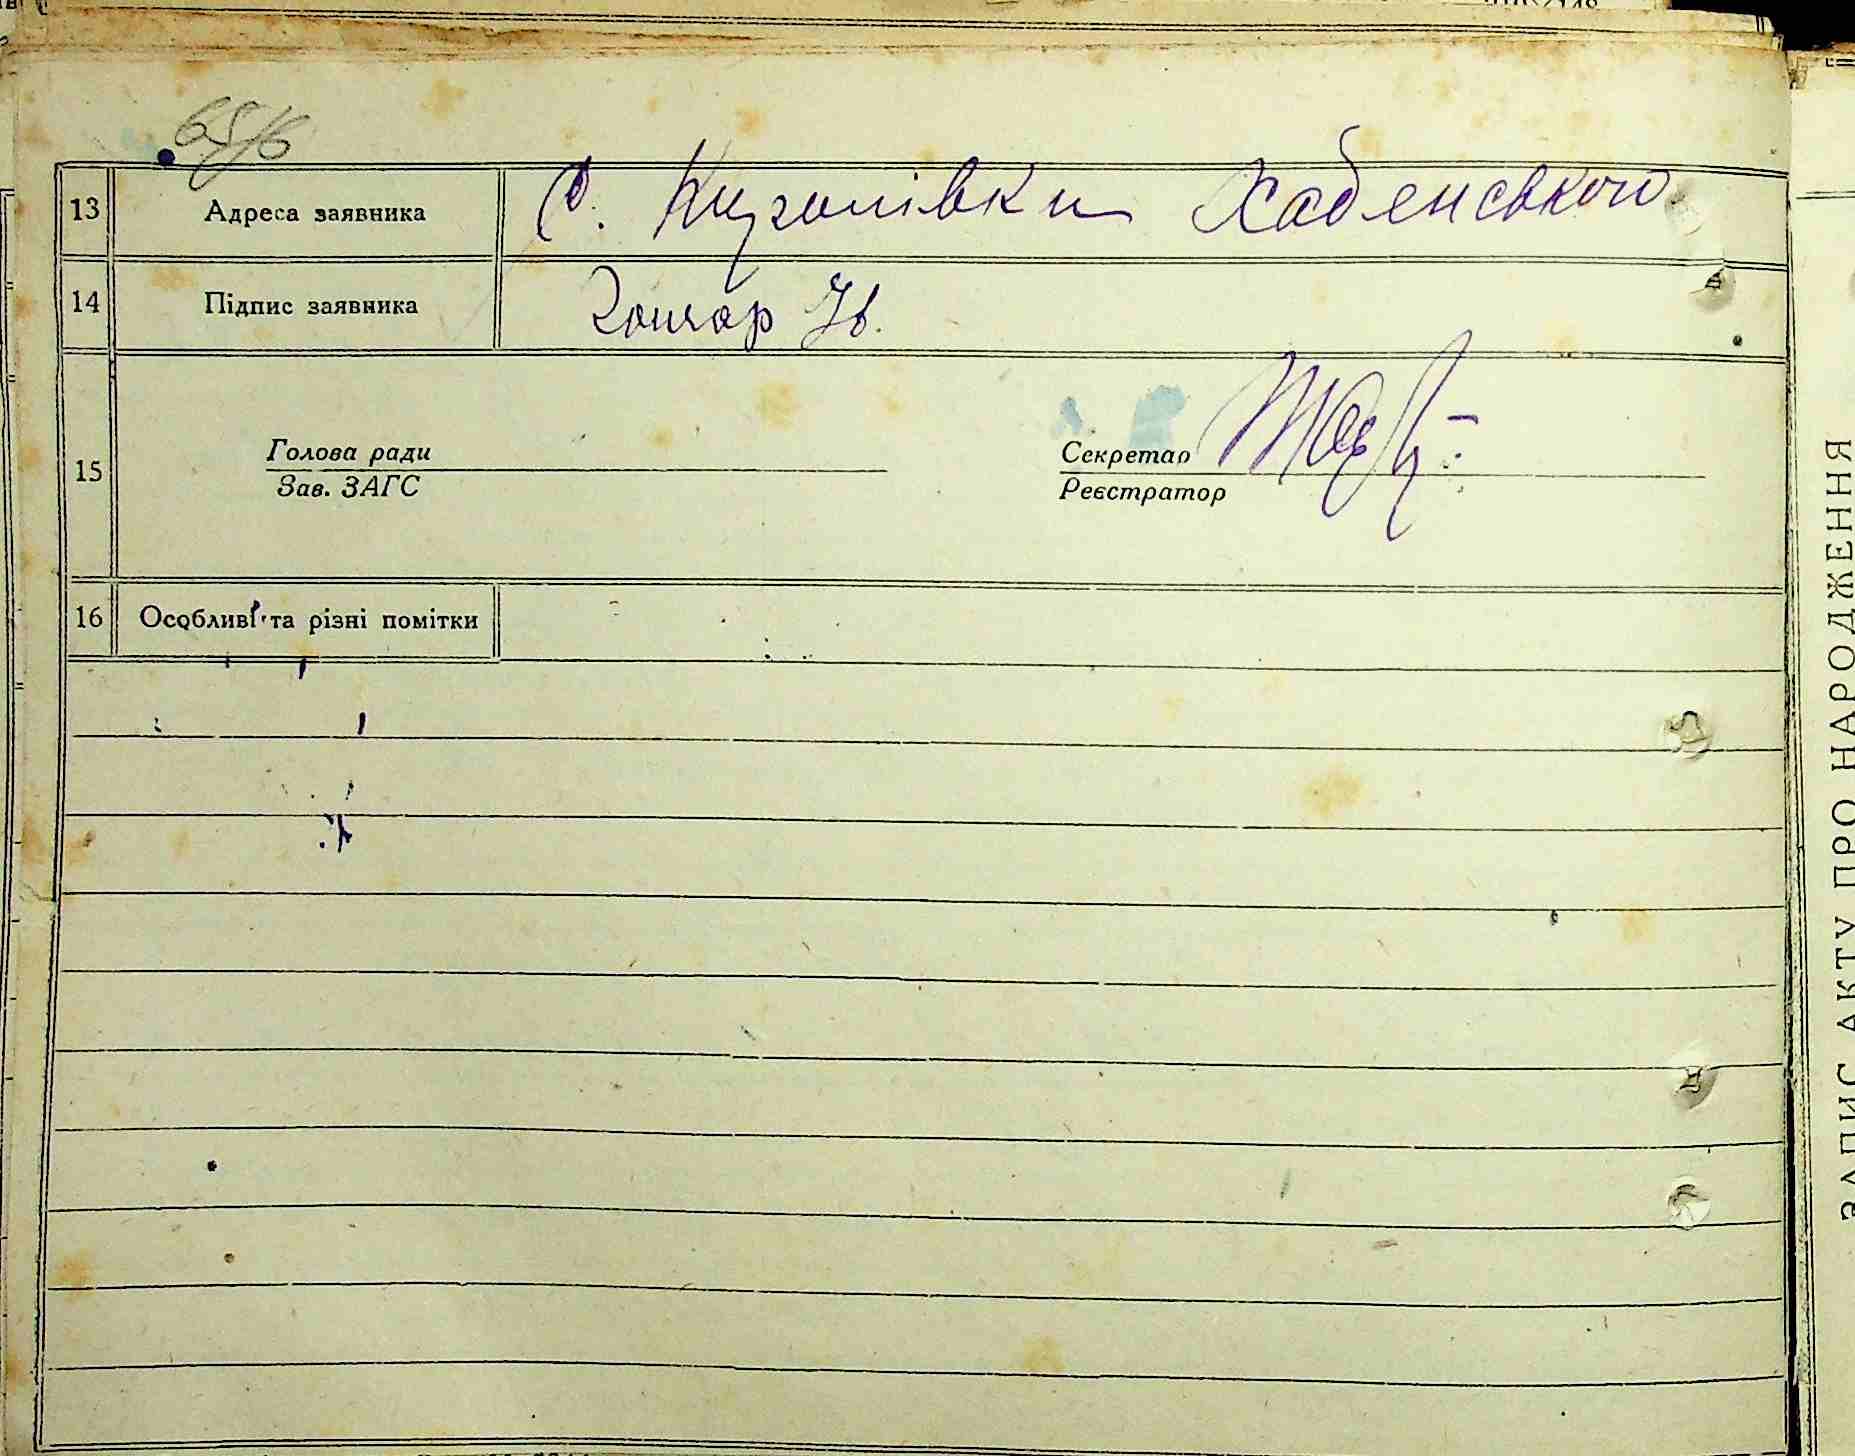 65/6
13 Адреса заявника С. Хабенського
14 Підпис заявника Гончар Ів.
15 Голова ради Секретар
Зав. ЗАГС Реєстратор
16 Особливі та різні помітки
ЗАПИС АКТУ ПРО НАРОДЖЕННЯ